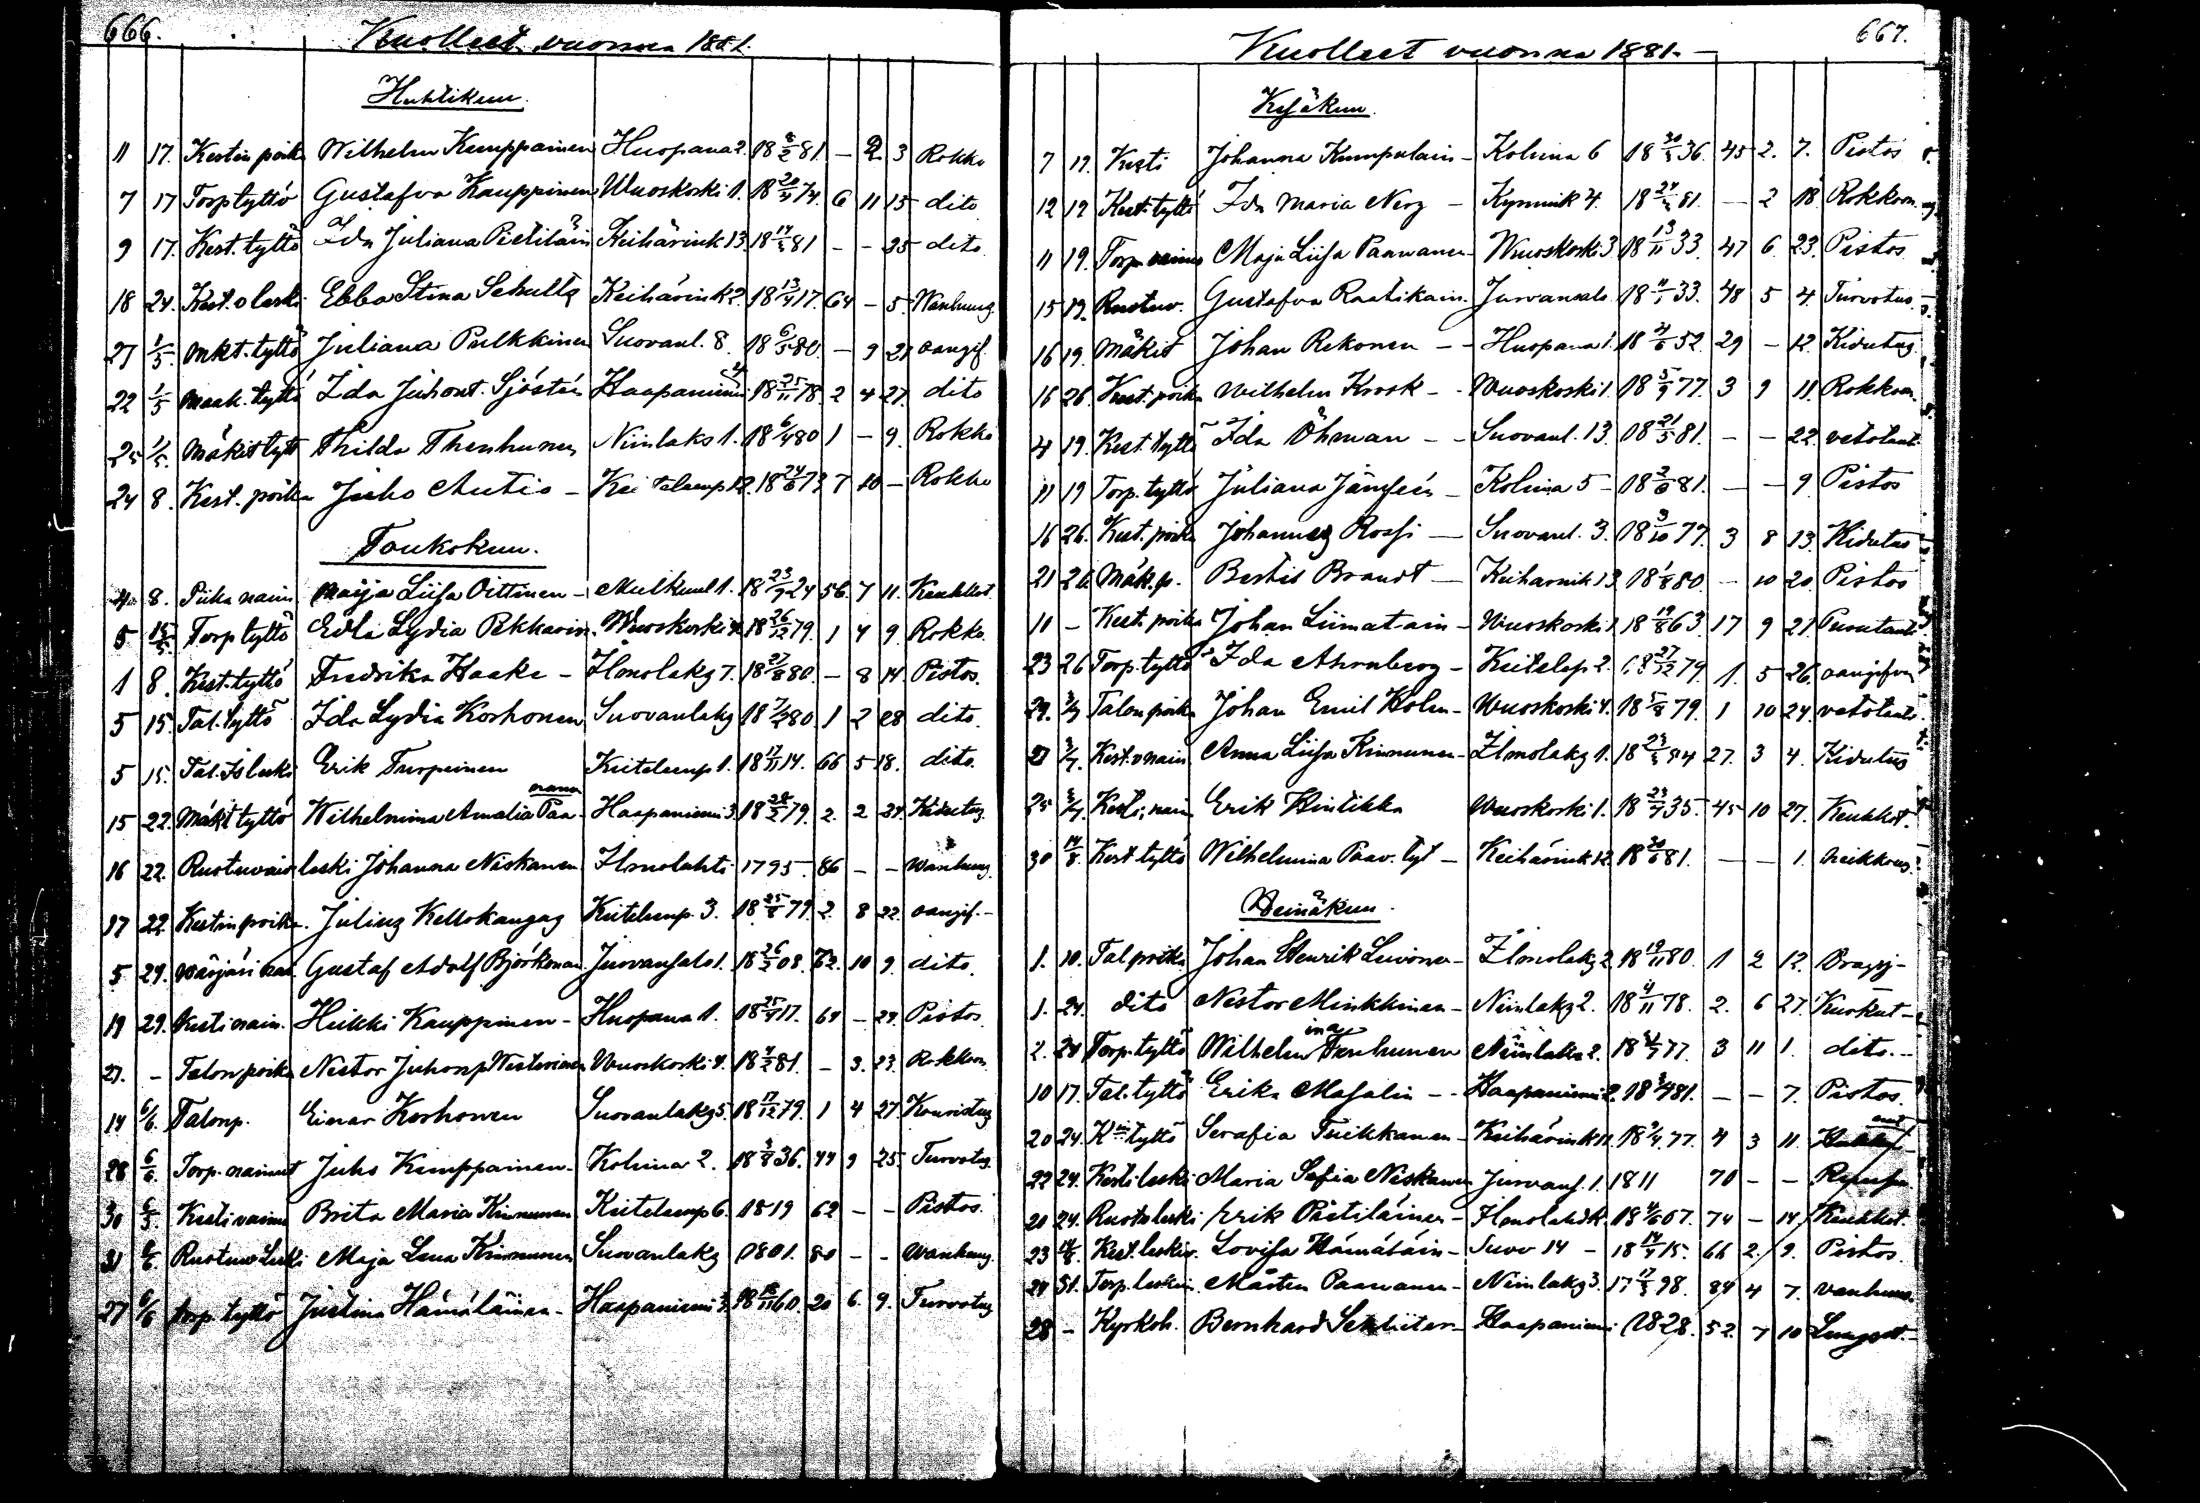 666.
Kuolleet vuonna 1881.
Huhtikuu.
11 17. Kestin poika Wilhelm Kemppainen Huopana 2. 18 8/2 81. – 2 3 Rokko
7 17 Torp tyttö Gustafva Kauppinen Wuoskoski 1. 18 20/4 74. 6 11 15 dito
9 17. Kest. tyttö Ida Juliana Pietiläin Keihärink 13. 18 14/3 81 – – 25 dito
18 24. Kest. o leski Ebba Stina Schultz Keihärink 2. 18 13/4 17. 64 – 5. Wanhuus
27 1/5. Mkt. tyttö Juliana Pulkkinen Suovanl. 8. 18 6/5 80. – 9 21 aangif.
22 1/5 Maak. tyttö Ida Juhont. Sjöstén Haapaniemi 4 18 25/11 78. 2 4 27. dito
25 1/5. Mäkit tytt Thilda Thenhunen Niinilaks 1. 18 6/4 80 1 – 9. Rokko
24 8. Kest. poika Juho Autio – Keitelemp 12. 18 24/6 73 7 10 – Rokko
Toukokuu.
4 8. Piika naim Maija Liisa Oittinen – Mulkuul 1. 18 23/9 24 56. 7 11. Keuhkot
5 15/5 Torp tyttö Edla Lydia Pekkarin. Wuoskoski 4. 18 26/12 79. 1 4 9. Rokko.
1 8. Kest. tyttö Fredrika Haake – Ilmolaks 7. 18 27/8 80. – 8 14. Pistos.
5 15. Tal. tyttö Ida Lydia Korhonen Suovanlaks 18 7/2 80. 1 2 28 dito.
5 15. Tal. Is leski Erik Turpeinen Keitelemp 1. 18 17/11 14. 66 5 18. dito.
15 22. Mäkit tyttö Wilhelmina Amalia Paananen Haapaniemi 3. 18 22/2 79. 2. 2 24. Kidutus
16 22. Ruotuvais leski Johanna Niskanen Ilmolahti 1795. 86 – – Wanhuus
17 22. Kestin poika. Julius Kellokangas Keitelemp. 3. 18 25/8 79 2. 8 22. aangif. –
5 29. Wärjäri Gustaf Adolf Björkman. Juovansalo 1. 18 26/2 08. 72. 10 9. dito.
19 29. Kesti naim. Heikki Kauppinen – Huopana 1. 18 25/4 17. 64 – 24. Pistos.
27. – Talon poika Nestor Juhonp Westerinen Wuoskoski 4. 18 4/2 81. – 3. 23. Rokkoon
14 6/6. Talonp. Einar Korhonen Suovanlaks 5. 18 17/12 79. 1 4 27. Kouristus
28 6/6. Torp. nainut Juho Kemppainen – Kolima 2. 18 3/8 36. 44 9 25. Turvotus
30 6/5. Kesti vaimo Brita Maria Kinnunen Keitelemp 6. 1819 62 – – Pistos.
31 6/6. Ruotuv Leski Maja Lena Kinnunen Suovanlaks 1801. 80 – – Wanhuus.
27 6/6 torp. tyttö Justina Hämäläinen – Haapaniemi 3. 18 18/11 60. 20 6. 9. Turvotus
667.
Kuolleet vuonna 1881. –
Kesäkuu.
7 19. Kesti Johanna Kumpulain – Kolima 6 18 30/3 36. 45 2. 7. Pistos
12 19 Kest. tyttö Ida Maria Nerg – Kymmink 4. 18 24/3 81. – 2 18 Rokkoon.
11 19. Torp. vaimo Maja Liisa Paananen – Wuoskoski 3. 18 13/11 33. 47 6 23. Pistos.
15 19. Ruotuv. Gustafva Raatikain. Jurvansalo. 18 11/1 33. 48 5 4. Turvotus.
16 19. Mäkit Johan Rekonen – – Huopana 1. 18 4/6 52. 29 – 12. Kidutus
16 26. Kest. poika Wilhelm Krook – Wuoskoski 1. 18 5/9 77. 3 9 11. Rokkoon.
4 19. Kest. tyttö Ida Öhman – – Suovanl. 13. 18 21/5 81. – – 22. vetotaut.
11 19 Torp. tyttö Juliana Jansén – Kolima 5 – 18 2/6 81. – – 9. Pistos
16 26. Kest. poika Johannes Rossi – Suovanl. 3. 18 3/10 77. 3 8 13. Kidutus
21 26. Mäk. p. Bertil Brandt – Keiharink 13. 18 1/8 80. – 10 20. Pistos
11 – Kest. poika Johan Liimatain – Wuoskoski 1. 18 19/8 63. 17 9 21
23 26 Torp. tyttö Ida Ahrnberg – Keitelep 2. 18 27/12 79. 1. 5 26. aangifva
29. 3/7 Talon poika Johan Emil Holm – Wuoskoski 4. 18 5/8 79. 1 10 24. vetotauti.
27 3/7. Kest. o nain Anna Liisa Kinnunen – Ilmolaks 1. 18 23/3 54 27. 3 4. Kidutus
25 3/7. Kesti; nain Erik Hintikka Wuoskoski 1. 18 23/7 35. 45 10 27. Keuhkot.
30 14/8. Kest tyttö Wilhelmina Paav. tyt – Keihärink 12. 18 30/6 81. – – 1. heikkous.
Heinäkuu.
1. 10. Tal poika Johan Henrik Leivonen – Ilmolaks 2. 18 19/11 80. 1 2 12.
1. 24. dito Nestor Minkkinen – Niinilaks 2. 18 4/11 78. 2. 6 27. Kurkut –
2. 24 Torp. tyttö Wilhelmina Tenhunen Niinilaks 2. 18 31/7 77. 3 11 1. dito. –
10 17. Tal. tyttö Erika Masalin – – Haapaniemi 2. 18 3/4 81. – – 7. Pistos.
20 24. Kin tyttö Serafia Tuikkanen – Keihärink 11. 18 9/4. 77. 4 3 11.
22 24. Kesti leski Maria Sofia Niskanen Jurvans. 1. 1811 70 – –
20 24. Ruotu leski Erik Pietiläinen – Ilmolahdk. 18 4/6 07. 74 – 14. Keuhkot.
23 14/8. Kest. leskiv. Lovisa Hämäläin – Suov 14 – 18 14/4 15. 66 2. 9. Pistos.
24 31. Torp. leskim. Mårten Paananen – Niinilaks 3. 17 17/3 98. 84 4 7. vanhuus.
28 – Kyrkoh. Bernhard Schlüter – Haapaniemi 1828. 52. 7 10 Lungsot. –